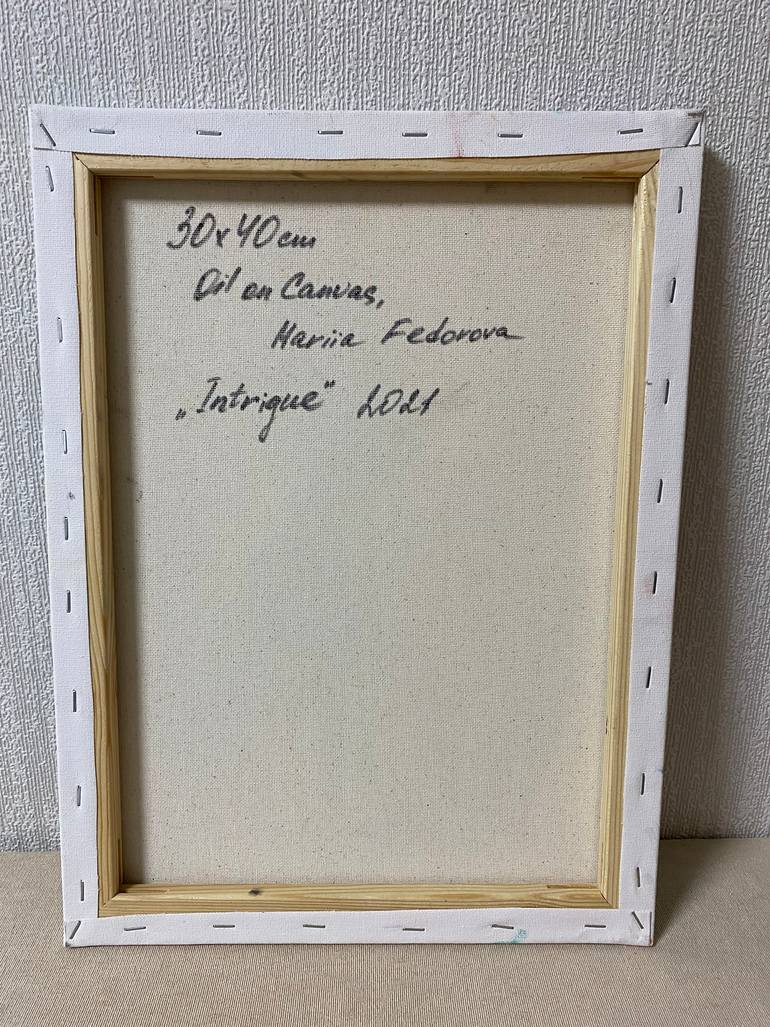 30x40cm
Oil on Canvas,
Mariia Fedorova
„Intrigue" 2021